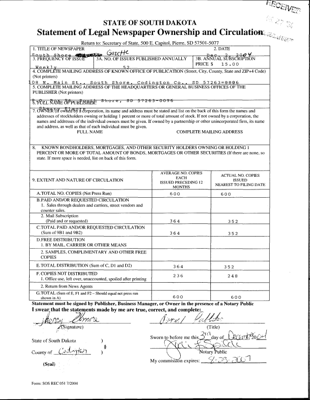 RECEIVED
STATE OF SOUTH DAKOTA
Statement of Legal Newspaper Ownership and Circulation
Return to: Secretary of State, 500 E. Capitol, Pierre, SD 57501-5077
1. TITLE OF NEWSPAPER
Gazette
2. DATE
3. FREQUENCY OF ISSUE
Weekly
3A. NO. OF ISSUES PUBLISHED ANNUALLY
3B. ANNUAL SUBSCRIPTION
PRICE $ 15.00
4. COMPLETE MAILING ADDRESS OF KNOWN OFFICE OF PUBLICATION (Street, City, County, State and ZIP+4 Code)
(Not printers)
5. COMPLETE MAILING ADDRESS OF THE HEADQUARTERS OR GENERAL BUSINESS OFFICES OF THE
PUBLISHER (Not printers)
7. OWNER (If owned by a corporation, its name and address must be stated and list on the back of this form the names and
addresses of stockholders owning or holding 1 percent or more of total amount of stock. If not owned by a corporation, the
names and addresses of the individual owners must be given. If owned by a partnership or other unincorporated firm, its name
and address, as well as that of each individual must be given.
FULL NAME
COMPLETE MAILING ADDRESS
8. KNOWN BONDHOLDERS, MORTGAGES, AND OTHER SECURITY HOLDERS OWNING OR HOLDING 1
PERCENT OR MORE OF TOTAL AMOUNT OF BONDS, MORTGAGES OR OTHER SECURITIES (If there are none, so
state. If more space is needed, list on back of this form.
9. EXTENT AND NATURE OF CIRCULATION
AVERAGE NO. COPIES
EACH
ISSUED PRECEDING 12
MONTHS
ACTUAL NO. COPIES
ISSUED
NEAREST TO FILING DATE
A. TOTAL NO. COPIES (Net Press Run)
600
600
B. PAID AND/OR REQUESTED CIRCULATION
1. Sales through dealers and carriers, street vendors and
counter sales.
2. Mail Subscription
(Paid and or requested)
364
352
C. TOTAL PAID AND/OR REQUESTED CIRCULATION
(Sum of 9B1 and 9B2)
364
352
D. FREE DISTRIBUTION
1. BY MAIL, CARRIER OR OTHER MEANS
2. SAMPLES, COMPLIMENTARY AND OTHER FREE
COPIES
E. TOTAL DISTRIBUTION (Sum of C, D1 and D2)
364
352
F. COPIES NOT DISTRIBUTED
1. Office use, left over, unaccounted, spoiled after printing
236
248
2. Return from News Agents
G. TOTAL (Sum of E, F1 and F2 - Should equal net press run
shown in A)
600
600
Statement must be signed by Publisher, Business Manager, or Owner in the presence of a Notary Public
I swear that the statements made by me are true, correct, and complete:
(Signature)
(Title)
State of South Dakota )
Sworn to before me this 3rd day of December
) §
County of Codington )
Notary Public
(Seal)
My commission expires:
Form: SOS REC 051 7/2004